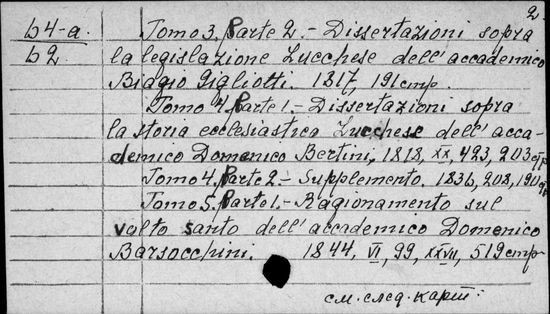 2.
64-a. Tomo 3. Parte 2.- Dissertazioni sopra
62 la legislazione Lucchese dell' accademico
Biagio Gigliotti. 1817, 191 стр.
Tomo 4. Parte 1.- Dissertazioni sopra
la storia ecclesiastica Lucchese dell' acca-
demico Domenico Bertini, 1818, XX, 423, 203 стр.
Tomo 4. Parte 2.- Supplemento. 1836, 208, 190 стр.
Tomo 5. Parte 1.- Ragionamento sul
volto santo dell' accademico Domenico
Barsocchini. 1844, VI, 99, XXVII, 519 стр.
см. след. карт.